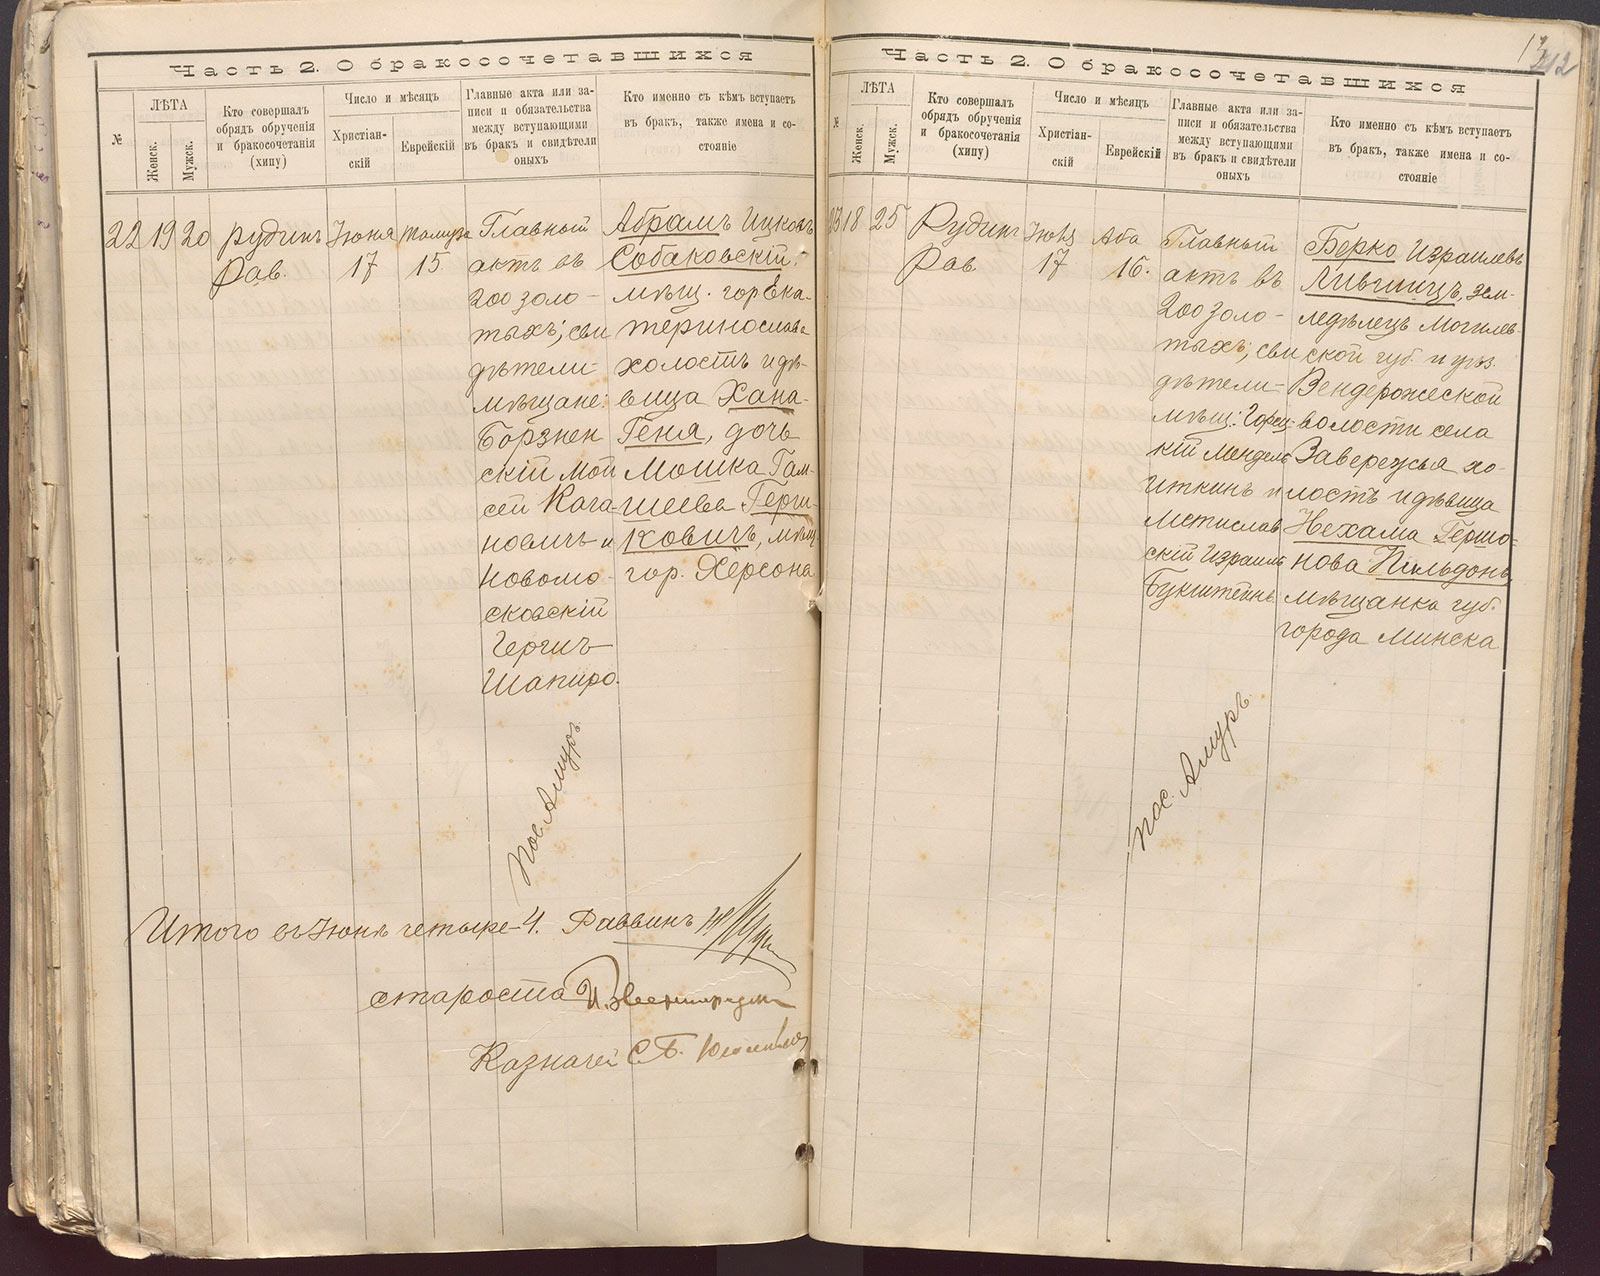 Часть 2. О бракосочетавшихся
№
ЛѢТА
Женск.
Мужск.
Кто совершалъ
обрядъ обрученія
и бракосочетанія
(хипу)
Число и мѣсяцъ
Христіан-
скій
Еврейскій
Главные акта или за-
писи и обязательства
между вступающими
въ бракъ и свидѣтели
оныхъ
Кто именно съ кѣмъ вступаетъ
въ бракъ, также имена и со-
стояніе
22
19
20
Рудинъ
Рав.
Іюня
17
Тамуза
15
Главный
актъ въ
200 золо-
тыхъ; сви
дѣтели-
мѣщане:
Борзнен
скій Мой
сей Кага-
новичъ и
Новомо-
сковскій
Герцъ
Шапиро.
Абрамъ Ицковъ
Собаковскій,
мѣщ. гор Ека-
теринослава
холостъ и дѣ-
вица Хана-
Геня, дочь
Мошка Гам-
шеева Герш-
ковичъ, мѣщ.
гор. Херсона
пос. Амуръ
Итого въ Іюнѣ четыре-4. Раввинъ
староста
Казначей С. Б.
13
12
Часть 2. О бракосочетавшихся
№
ЛѢТА
Женск.
Мужск.
Кто совершалъ
обрядъ обрученія
и бракосочетанія
(хипу)
Число и мѣсяцъ
Христіан-
скій
Еврейскій
Главные акта или за-
писи и обязательства
между вступающими
въ бракъ и свидѣтели
оныхъ
Кто именно съ кѣмъ вступаетъ
въ бракъ, также имена и со-
стояніе
23
18
25
Рудинъ
Рав
17
Аба
16.
Главный
актъ въ
200 золо-
тыхъ; сви
дѣтели-
мѣщ: Горец-
кій Мендель
Иткинъ и
Мстислав
скій Израиль
Букштейнъ
Берко Израилевъ
Лившицъ, зем-
ледѣлецъ Могилев-
ской губ. и уѣз.
Вендорожской
волости села
Завережья хо-
лостъ и дѣвица
Нехама Гершо-
нова Пильдонъ,
мѣщанка губ.
города Минска
пос. Амуръ